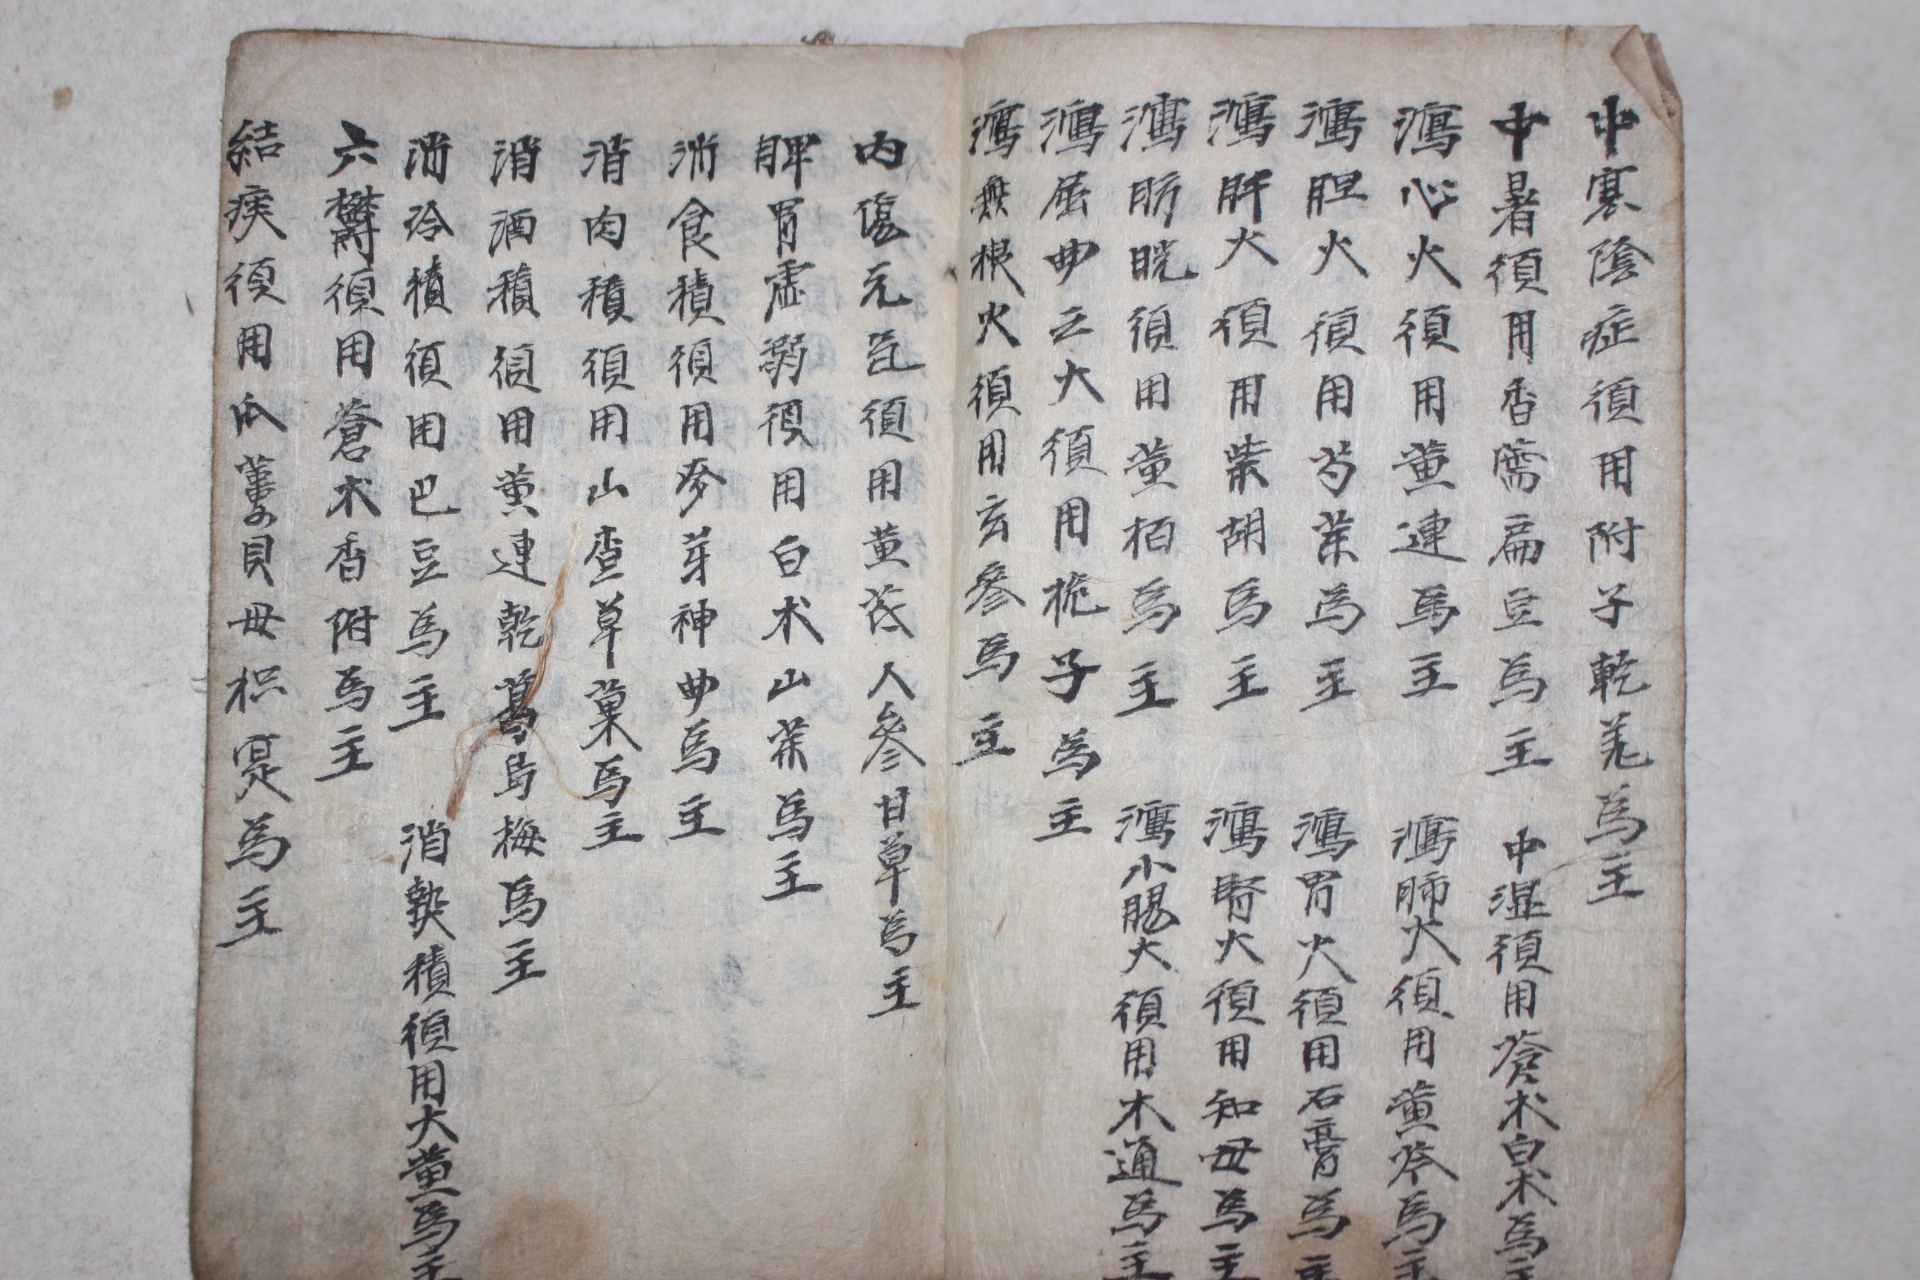 中寒陰症須用附子乾羌為主
中暑須用香薷扁豆為主 中湿須用蒼朮白朮為主
瀉心火須用黄連為主 瀉肺火須用黄芩為主
瀉胆火須用芍薬為主 瀉胃火須用石膏為主
瀉肝火須用柴胡為主 瀉腎火須用知母為主
瀉肪胱須用黄栢為主 瀉小腸火須用木通為主
瀉屈曲之火須用梔子為主
瀉無根火須用玄參為主
内傷元気須用黄芪人參甘草為主
脾胃虚弱須用白朮山薬為主
消食積須用麥芽神曲為主
消肉積須用山査草菓為主
消酒積須用黄連乾葛烏梅為主
消冷積須用巴豆為主 消熱積須用大黄為主
六鬱須用蒼朮香附為主
結痰須用瓜蔞貝母枳実為主